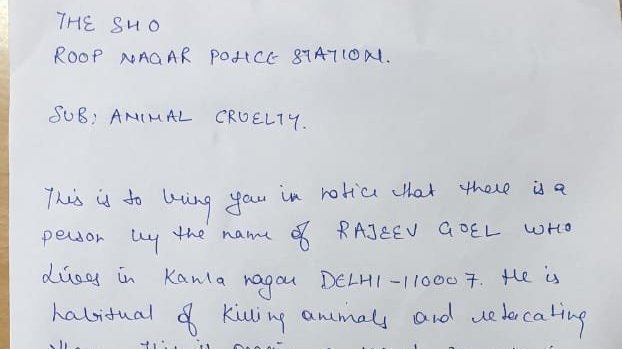 THE SHO
ROOP NAGAR POLICE STATION.
SUB: ANIMAL CRUELTY.
This is to bring you in notice that there is a
person by the name of RAJEEV GOEL WHO
Lives in Kamla nagar DELHI-110007. He is
habitual of killing animals and relocating